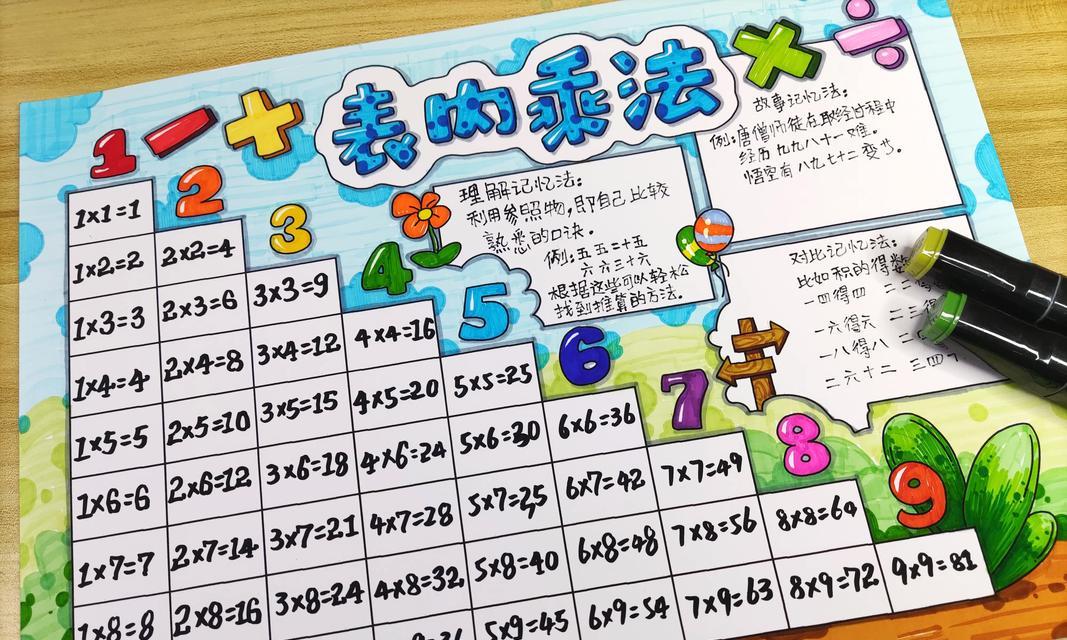 表内乘法
1 − + × ÷
2
3
4
5
6
7
8
9
故事记忆法:
例:唐僧师徒在取经过程中
经历九九八十一难。
悟空有八九七十二变书。
理解记忆法:
利用参照物,即自己比较
熟悉的口诀。
例:五五二十五
六六三十六
根据这些可以轻松
找到推算的方法。
对比记忆法:
比如积的得数
一四得四 二二得
一六得六 二三得
一八得八 二
二六十二 三四
1×1=1
1×2=2 2×2=4
1×3=3 2×3=6 3×3=9
1×4=4 2×4=8 3×4=12 4×4=16
1×5=5 2×5=10 3×5=15 4×5=20 5×5=25
1×6=6 2×6=12 3×6=18 4×6=24 5×6=30 6×6=36
1×7=7 2×7=14 3×7=21 4×7=28 5×7=35 6×7=42 7×7=49
1×8=8 2×8=16 3×8=24 4×8=32 5×8=40 6×8=48 7×8=56 8×8=64
5×9=45 6×9=54 7×9=63 8×9=72 9×9=81